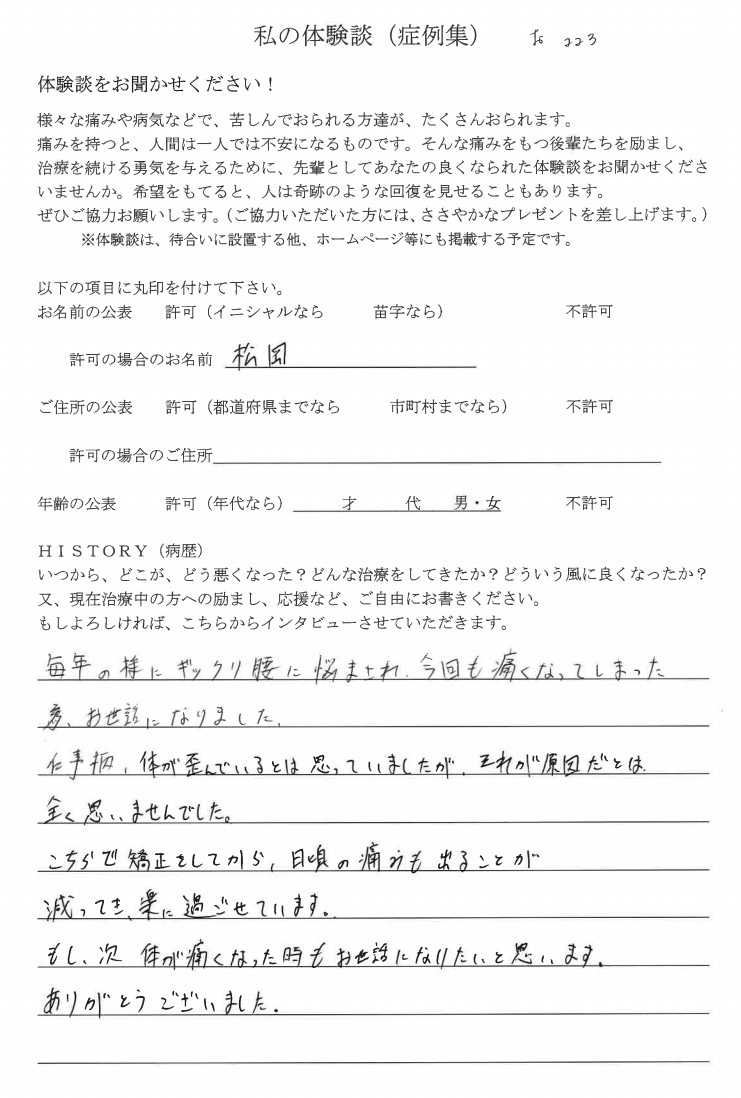 私の体験談（症例集） 223
体験談をお聞かせください！
様々な痛みや病気などで、苦しんでおられる方達が、たくさんおられます。
痛みを持つと、人間は一人では不安になるものです。そんな痛みをもつ後輩たちを励まし、
治療を続ける勇気を与えるために、先輩としてあなたの良くなられた体験談をお聞かせくださ
いませんか。希望をもてると、人は奇跡のような回復を見せることもあります。
ぜひご協力お願いします。（ご協力いただいた方には、ささやかなプレゼントを差し上げます。）
※体験談は、待合いに設置する他、ホームページ等にも掲載する予定です。
以下の項目に丸印を付けて下さい。
お名前の公表 許可（イニシャルなら 苗字なら） 不許可
許可の場合のお名前 松岡
ご住所の公表 許可（都道府県までなら 市町村までなら） 不許可
許可の場合のご住所
年齢の公表 許可（年代なら） 才 代 男・女 不許可
ＨＩＳＴＯＲＹ（病歴）
いつから、どこが、どう悪くなった？どんな治療をしてきたか？どういう風に良くなったか？
又、現在治療中の方への励まし、応援など、ご自由にお書きください。
もしよろしければ、こちらからインタビューさせていただきます。
毎年の様にギックリ腰に悩まされ、今回も痛くなってしまった
為、お世話になりました。
仕事柄、体が歪んでいるとは思っていましたが、それが原因だとは
全く思いませんでした。
こちらで矯正をしてから、日頃の痛みも出ることが
減ってき、楽に過ごせています。
もし、次 体が痛くなった時もお世話になりたいと思います。
ありがとうございました。